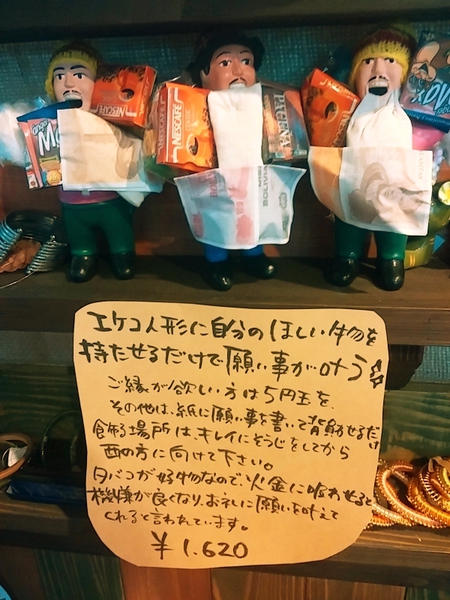 NESCAFÉ
NESCAFÉ
NESCAFÉ
エケコ人形に自分のほしい物を
持たせるだけで願い事が叶う
ご縁が欲しい方は5円玉を、
その他は、紙に願い事を書いて背負わせるだけ
飾る場所は、キレイにそうじをしてから
西の方に向けて下さい。
タバコが好物なので火・金に吸わせると
機嫌が良くなり、おネしに願いを叶えて
くれると言われています。
¥1.620